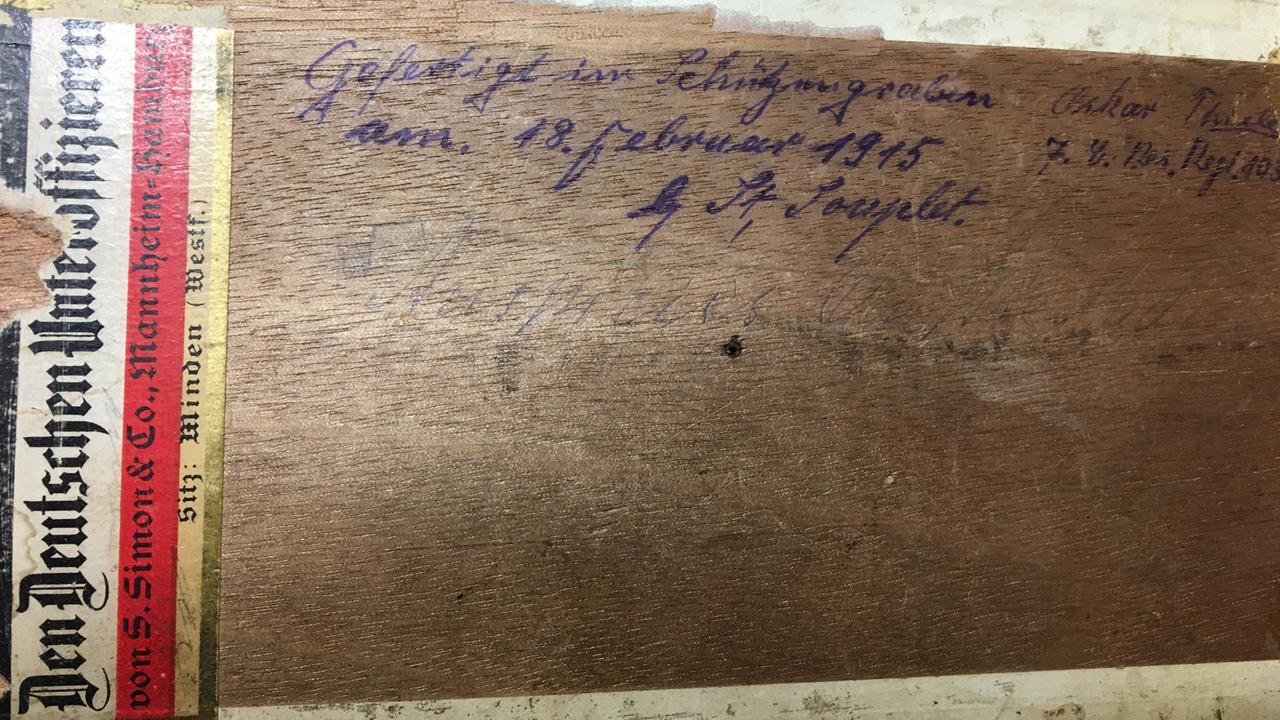 Den Deutschen Unteroffizieren
von S. Simon & Co., Mannheim-Hamburg
Sitz: Minden (Westf.)
Gefertigt im Schützengraben
am. 18. Februar 1915
St. Souplet.
Oskar
7. Res. Regt.